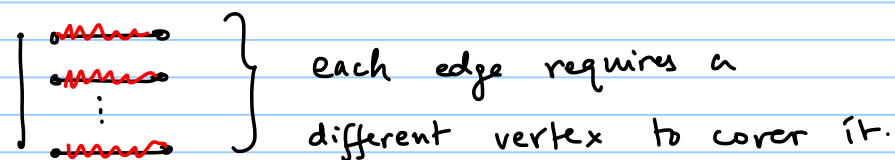 each edge requires a
different vertex to cover it.